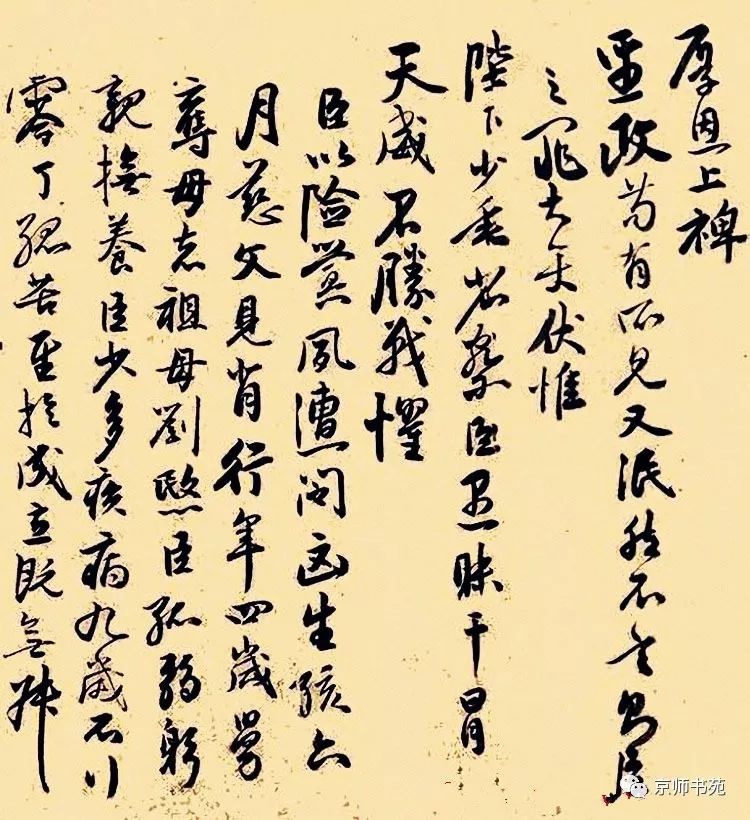 厚恩上裨
聖政苟有所見又泯然不言即臣
之罪大矣伏惟
陛下少垂省察臣愚昧干冒
天威不勝戰懼
臣以險釁夙遭閔凶生孩六
月慈父見背行年四歲舅
奪母志祖母劉愍臣孤弱躬
親撫養臣少多疾病九歲不行
零丁孤苦至於成立既無叔
京师书苑